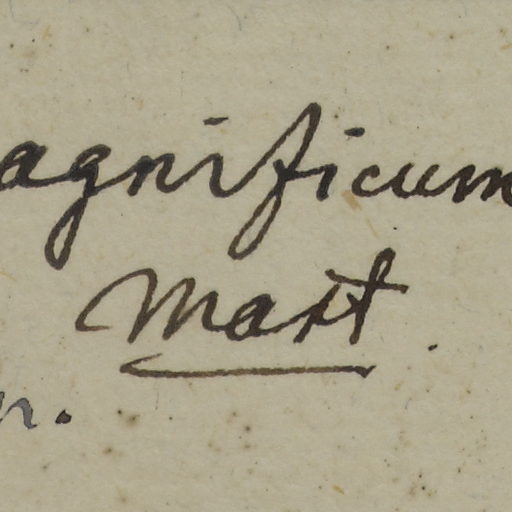 agnificum
Mart.
n.